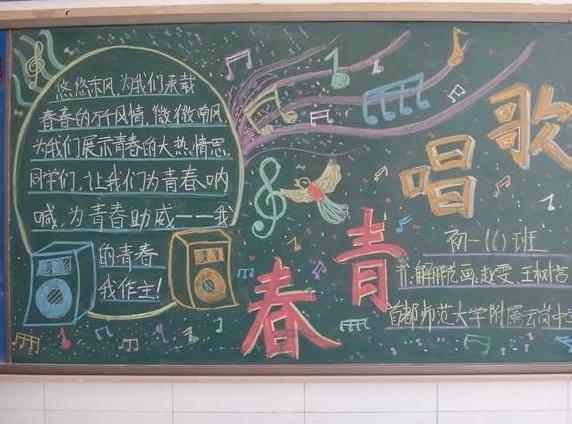 悠悠东风,为我们承载
青春的万千风情,微微南风
为我们展示青春的大热情思.
同学们,让我们为青春呐
喊,为青春助威——我
的青春
我作主!
歌
唱
青
春
初一(1)班
苏、解鹏艳画、赵雯、王
首都师范大学附属云岗中